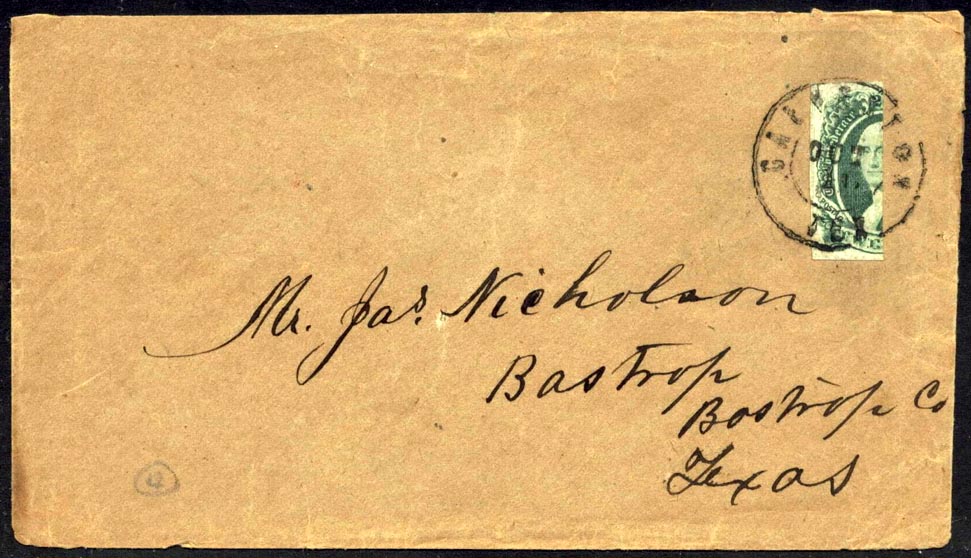 OCT
TEX
Mr. Jas. Nicholson
Bastrop
Bastrop Co
Texas
4